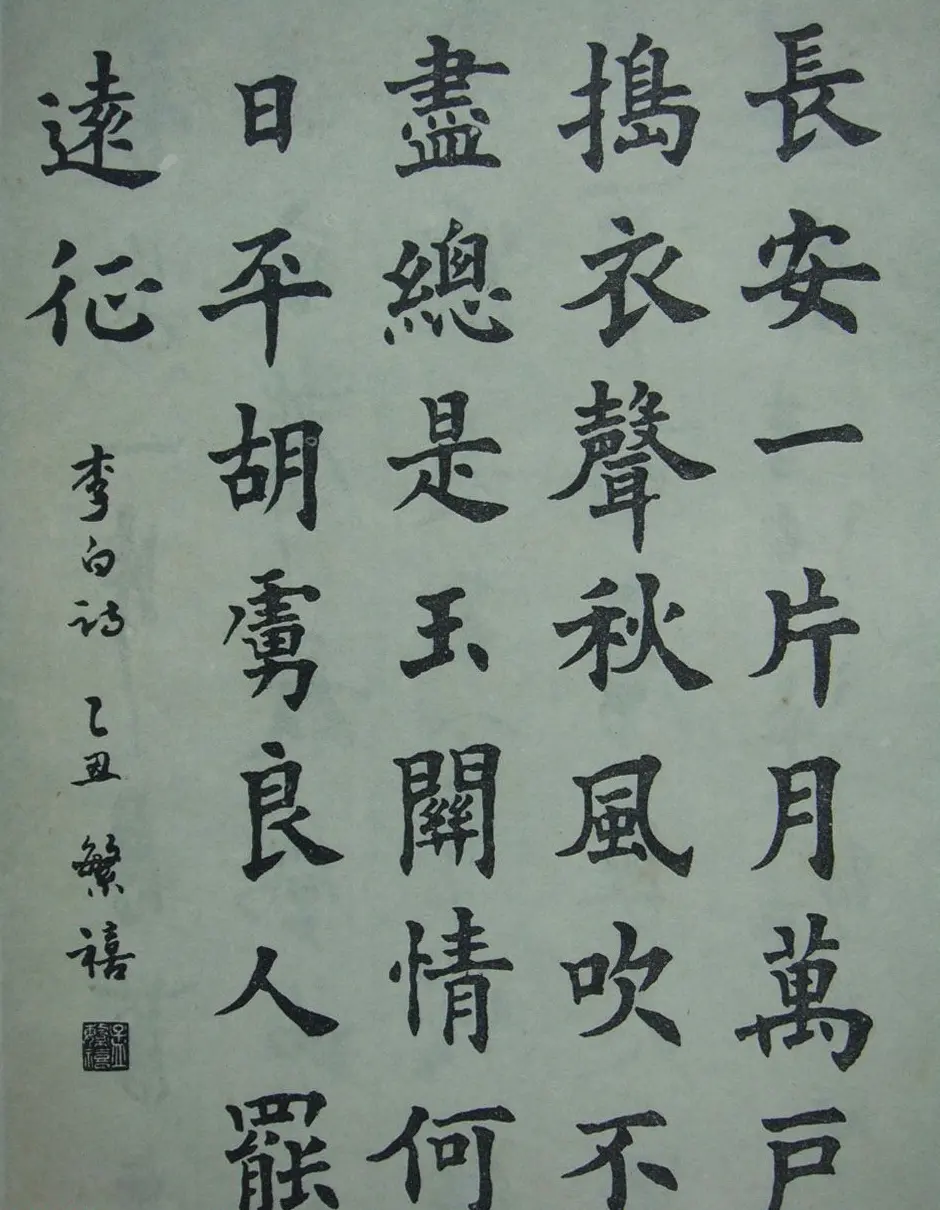 長安一片月萬戸
搗衣聲秋風吹不
盡總是玉關情何
日平胡虜良人罷
遠征
李白詩 乙丑 繁禧